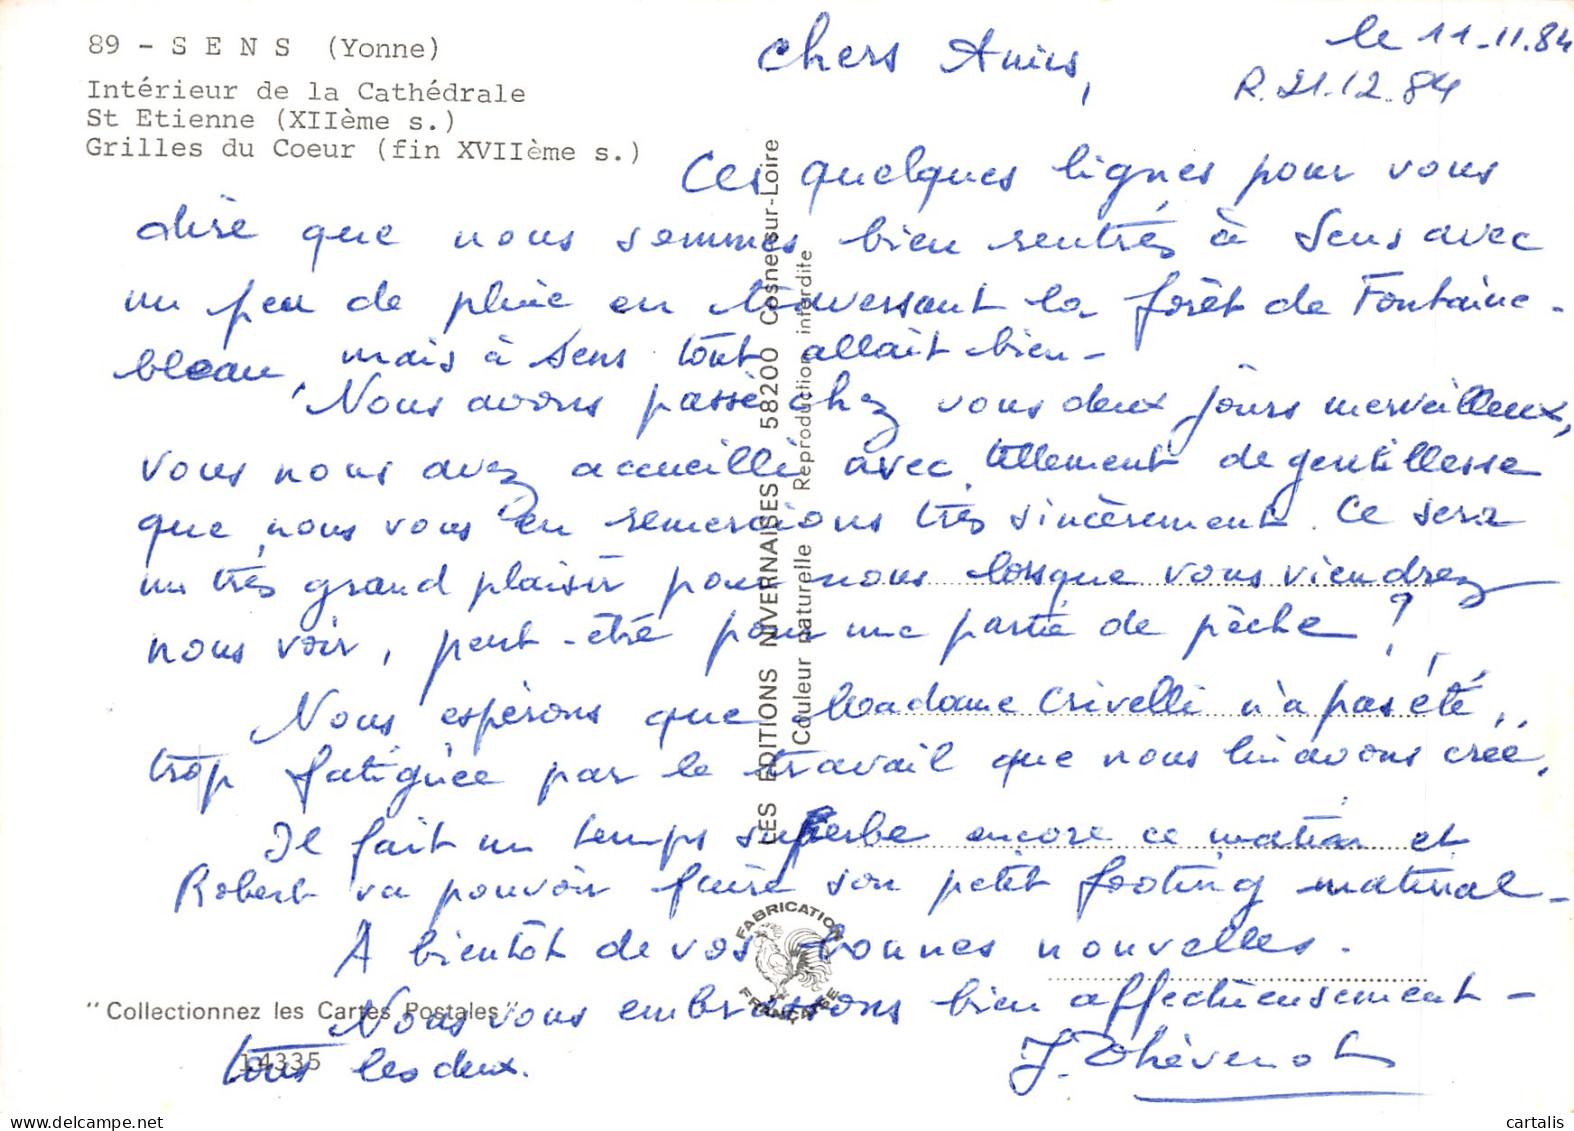 89 - S E N S (Yonne)
Intérieur de la Cathédrale
St Etienne (XIIème s.)
Grilles du Coeur (fin XVIIème s.)
le 11-11.84
R. 21.12.84
Chers Amis,
Ces quelques lignes pour vous
dire que nous sommes bien rentrés à Sens avec
un peu de pluie en traversant la forêt de Fontaine-
bleau, mais à Sens tout allait bien-
Nous avons passé chez vous deux jours merveilleux,
vous nous avez accueilli avec tellement de gentillesse
que nous vous en remercions très sincèrement. Ce sera
un très grand plaisir pour nous lorsque vous viendrez
nous voir, peut-être pour une partie de pêche ?
Nous espérons que Madame Crivelli n'a pas été
trop fatiguée par le travail que nous lui avons créé.
Il fait un temps superbe encore ce matin et
Robert va pouvoir faire son petit footing matinal-
A bientôt de vos bonnes nouvelles.
Nous vous embrassons bien affectueusement-
tous les deux.
J. Thévenot
LES EDITIONS NIVERNAISES 58200 Cosne-sur-Loire
Couleur naturelle Reproduction interdite
FABRICATION FRANÇAISE
"Collectionnez les Cartes Postales"
14335
cartalis